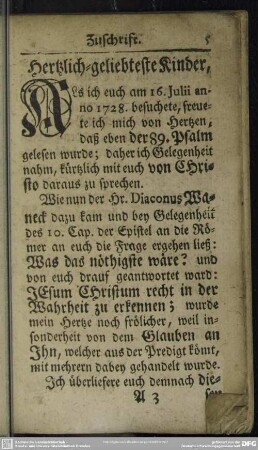 Zuschrifft. 5
Hertzlich-geliebteste Kinder,
ALs ich euch am 16. Julii an-
no 1728. besuchete, freue-
te ich mich von Hertzen,
daß eben der 89. Psalm
gelesen wurde; daher ich Gelegenheit
nahm, kürtzlich mit euch von CHri-
sto daraus zu sprechen.
Wie nun der Hr. Diaconus Wa-
neck dazu kam und bey Gelegenheit
des 10. Cap. der Epistel an die Rö-
mer an euch die Frage ergehen ließ:
Was das nöthigste wäre? und
von euch drauf geantwortet ward:
JEsum CHristum recht in der
Wahrheit zu erkennen; wurde
mein Hertze noch frölicher, weil in-
sonderheit von dem Glauben an
Jhn, welcher aus der Predigt kömt,
mit mehrern dabey gehandelt wurde.
Jch überliefere euch demnach die-
A 3 sen
DFG